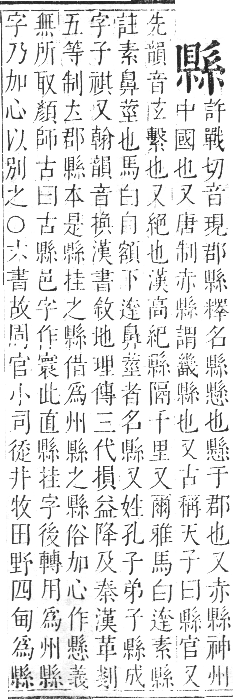 縣
許戰切音現郡縣釋名縣懸也懸于郡也又赤縣神州
中國也又唐制赤縣謂畿縣也又古稱天子曰縣官又
先韻音𢆯繫也又絕也漢高紀縣隔千里又爾雅馬白達素縣
註素鼻莖也馬白自額下達鼻莖者名縣又姓孔子弟子縣成
字子祺又翰韻音換漢書敘地理傳三代損益降及秦漢革剗
五等制立郡縣本是縣挂之縣借爲州縣之縣俗加心作懸義
無所取顔師古曰古縣邑字作寰此直縣挂字後轉用爲州縣
字乃加心以別之○六書故周官小司徒井牧田野四甸爲縣